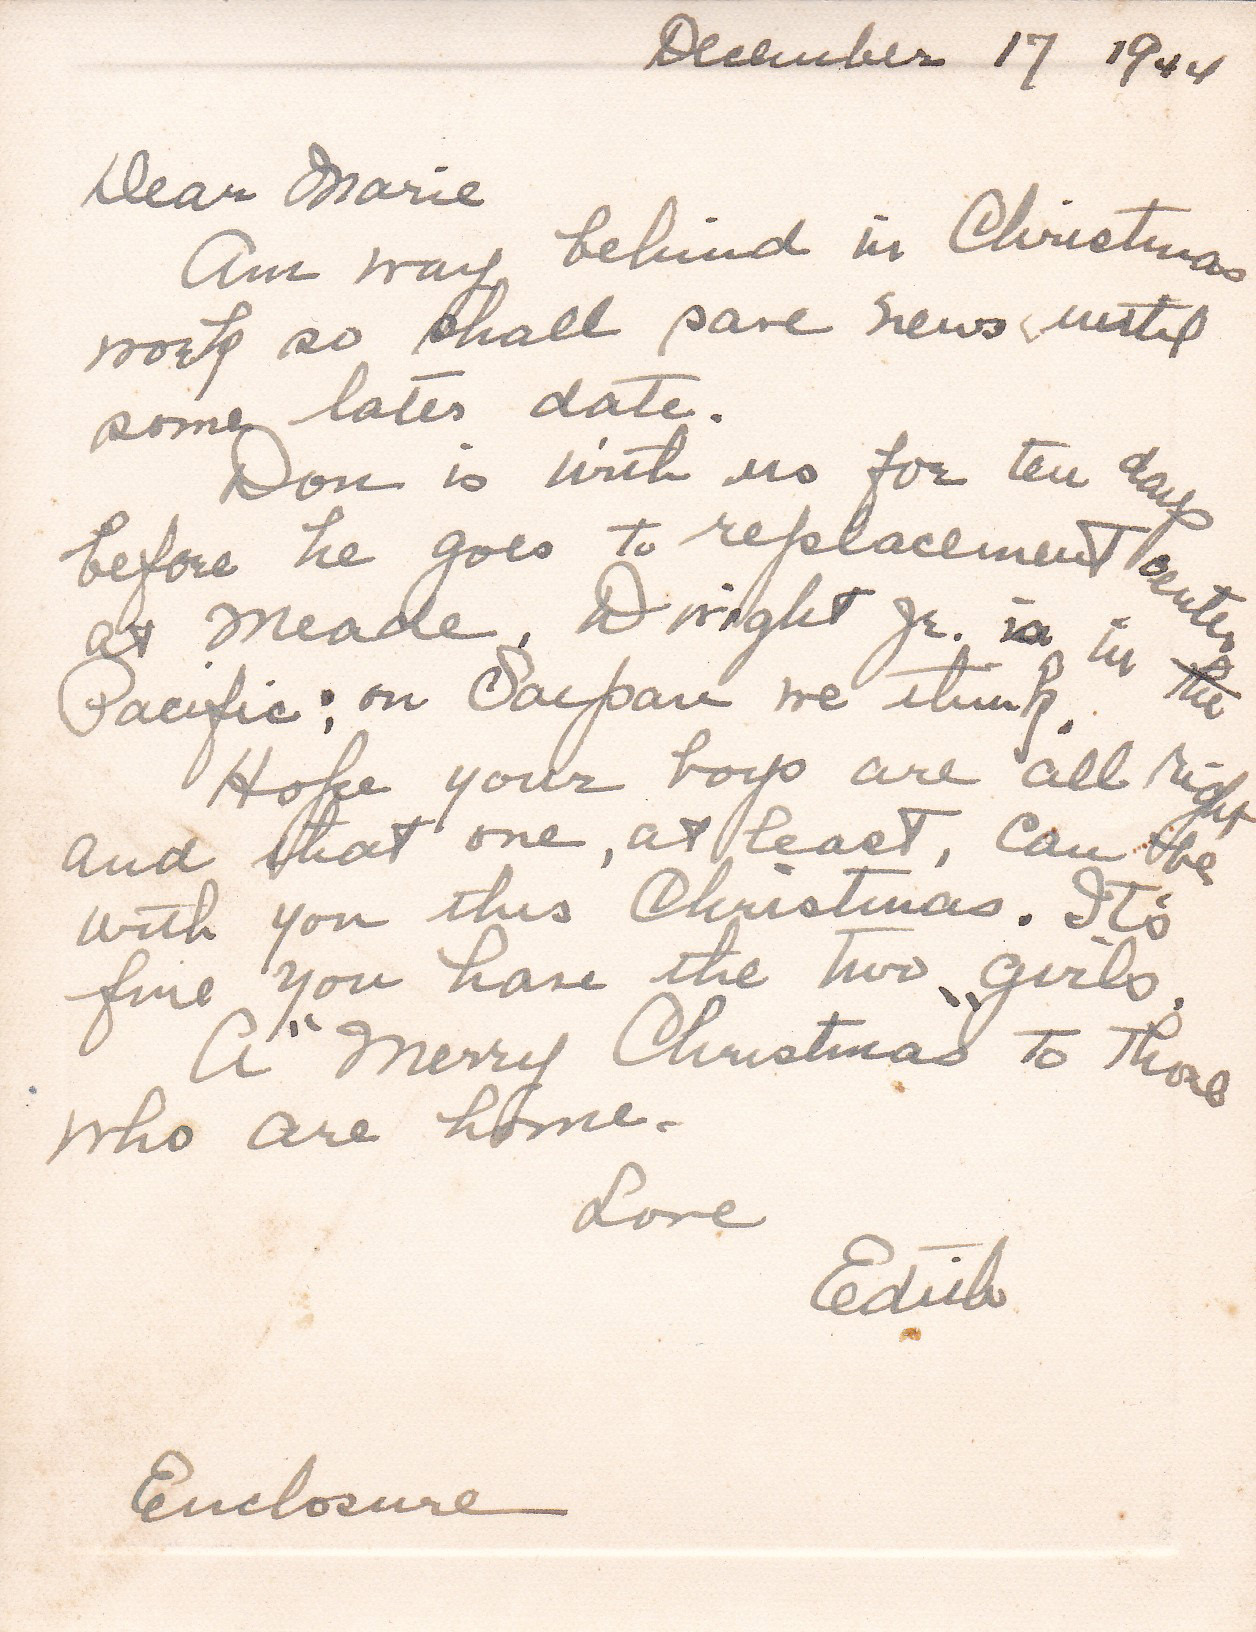 December 17 1944
Dear Marie
Am way behind in Christmas
work so shall save news until
some later date.
Don is with us for ten days
before he goes to replacement center
at Meade. Dwight Jr. is in the
Pacific; on Saipan we think.
Hope your boys are all right
and that one, at least, can be
with you this Christmas. It's
fine you have the two girls.
A "Merry Christmas" to those
who are home.
Love
Edith
Enclosure